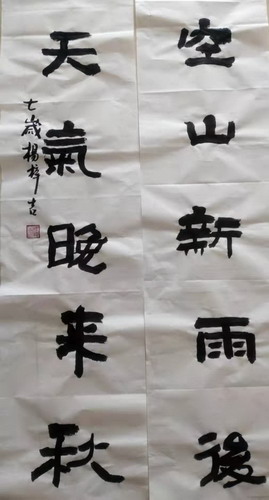 空山新雨後
天氣晚来秋
七歲楊梓吉